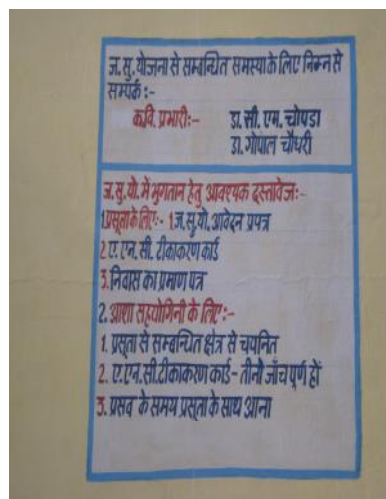 ज. सु. योजना से सम्बन्धित समस्या के लिए निम्न से
सम्पर्क :-
कवि. प्रभारी:- डा. सी. एम. चोपडा
डा. गोपाल चौधरी
ज. सु. यो. में भुगतान हेतु आवश्यक दस्तावेज:-
1. प्रसूता के लिए:- 1 ज. सु. यो. आवेदन प्रपत्र
2 ए. एन. सी. टीकाकरण कार्ड
3. निवास का प्रमाण पत्र
2. आशा सहयोगिनी के लिए:-
1. प्रसूता से सम्बन्धित क्षेत्र से चयनित
2. ए. एन. सी. टीकाकरण कार्ड - तीनो जाँच पूर्ण हों
3. प्रसव के समय प्रसूता के साथ आना